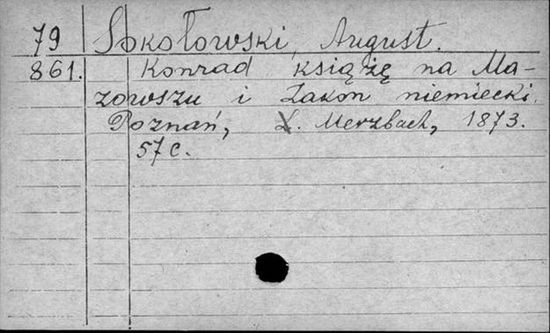 79 Sokołowski, August.
861. Konrad książę na Ma-
zowszu i Zakon niemiecki.
Poznań, L. Merzbach, 1873.
57 c.